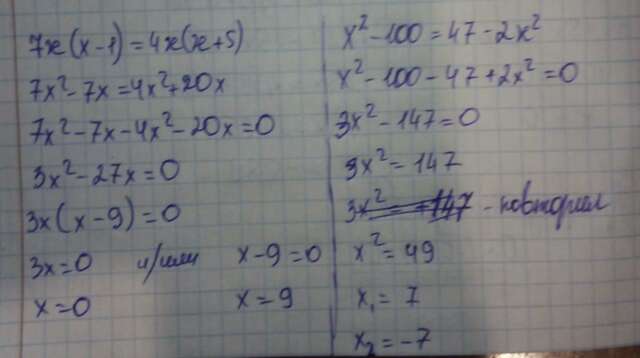 7x(x-1)=4x(x+5)
7x²-7x=4x²+20x
7x²-7x-4x²-20x=0
3x²-27x=0
3x(x-9)=0
3x=0 и/или x-9=0
x=0 x=9
x²-100=47-2x²
x²-100-47+2x²=0
3x²-147=0
3x²=147
3x²=147 - повторил
x²=49
x₁=7
x₂=-7